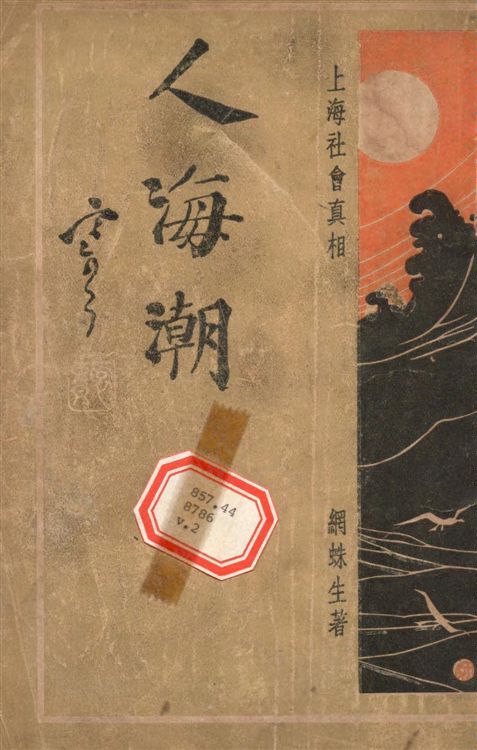 上海社會真相
網蛛生著
人海潮
857.44
8786
v.2